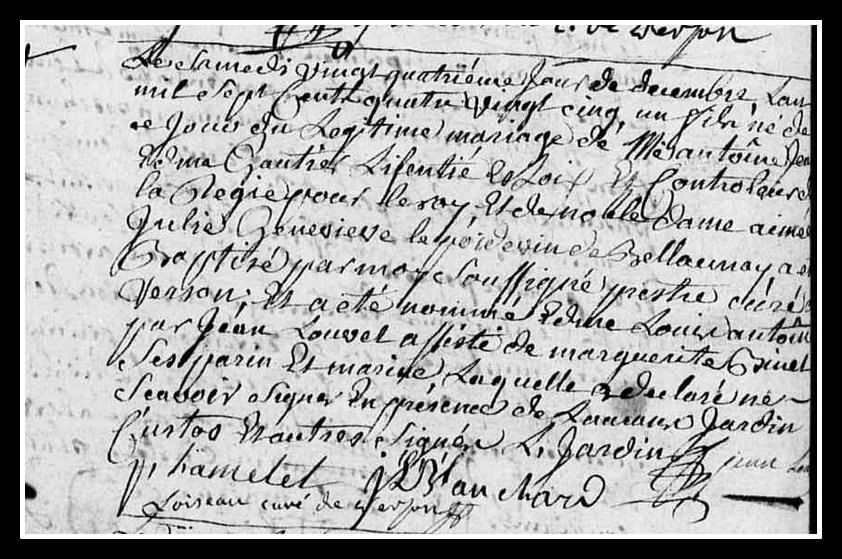 c. de verson
Le Samedi vingt quatriéme Jour de decembre Lan
mil Sept Cent quatre vingt cinq, un fils né de
ce Jour du Legitime mariage de Me antoîne Jean
Edme Gautier Licentié Es Loix Et Controleur de
la Regie pour le roy, Et de noble dame aimée
Julie Genevieve le poidevin de Bellaunay a eté
Baptisé par moy Soussigné prestre curé de
Verson; Et a eté nommé Edme Louis antoîne
par Jéan Louvel assisté de marguerite Binet
Ses parin Et marine Laquelle a declaré ne
Scavoir Signer En présence de Jardin
Custos Et autres Signés L. Jardin
jean Lou
p. hamelet J. Blanchard
Loiseau curé de verson